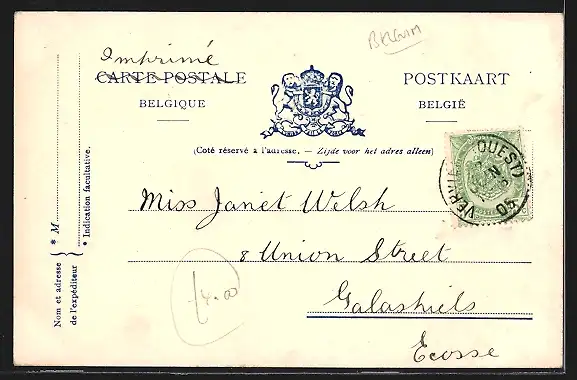 Imprimé
BELGIUM
CARTE POSTALE
POSTKAART
BELGIQUE
BELGIË
(Coté réservé a l'adresse. — Zijde voor het adres alleen)
OUEST)
05
Miss Janet Welsh
8 Union Street
Galashiels
Ecosse
£4.00
* M
* Indication facultative.
Nom et adresse
de l'expéditeur